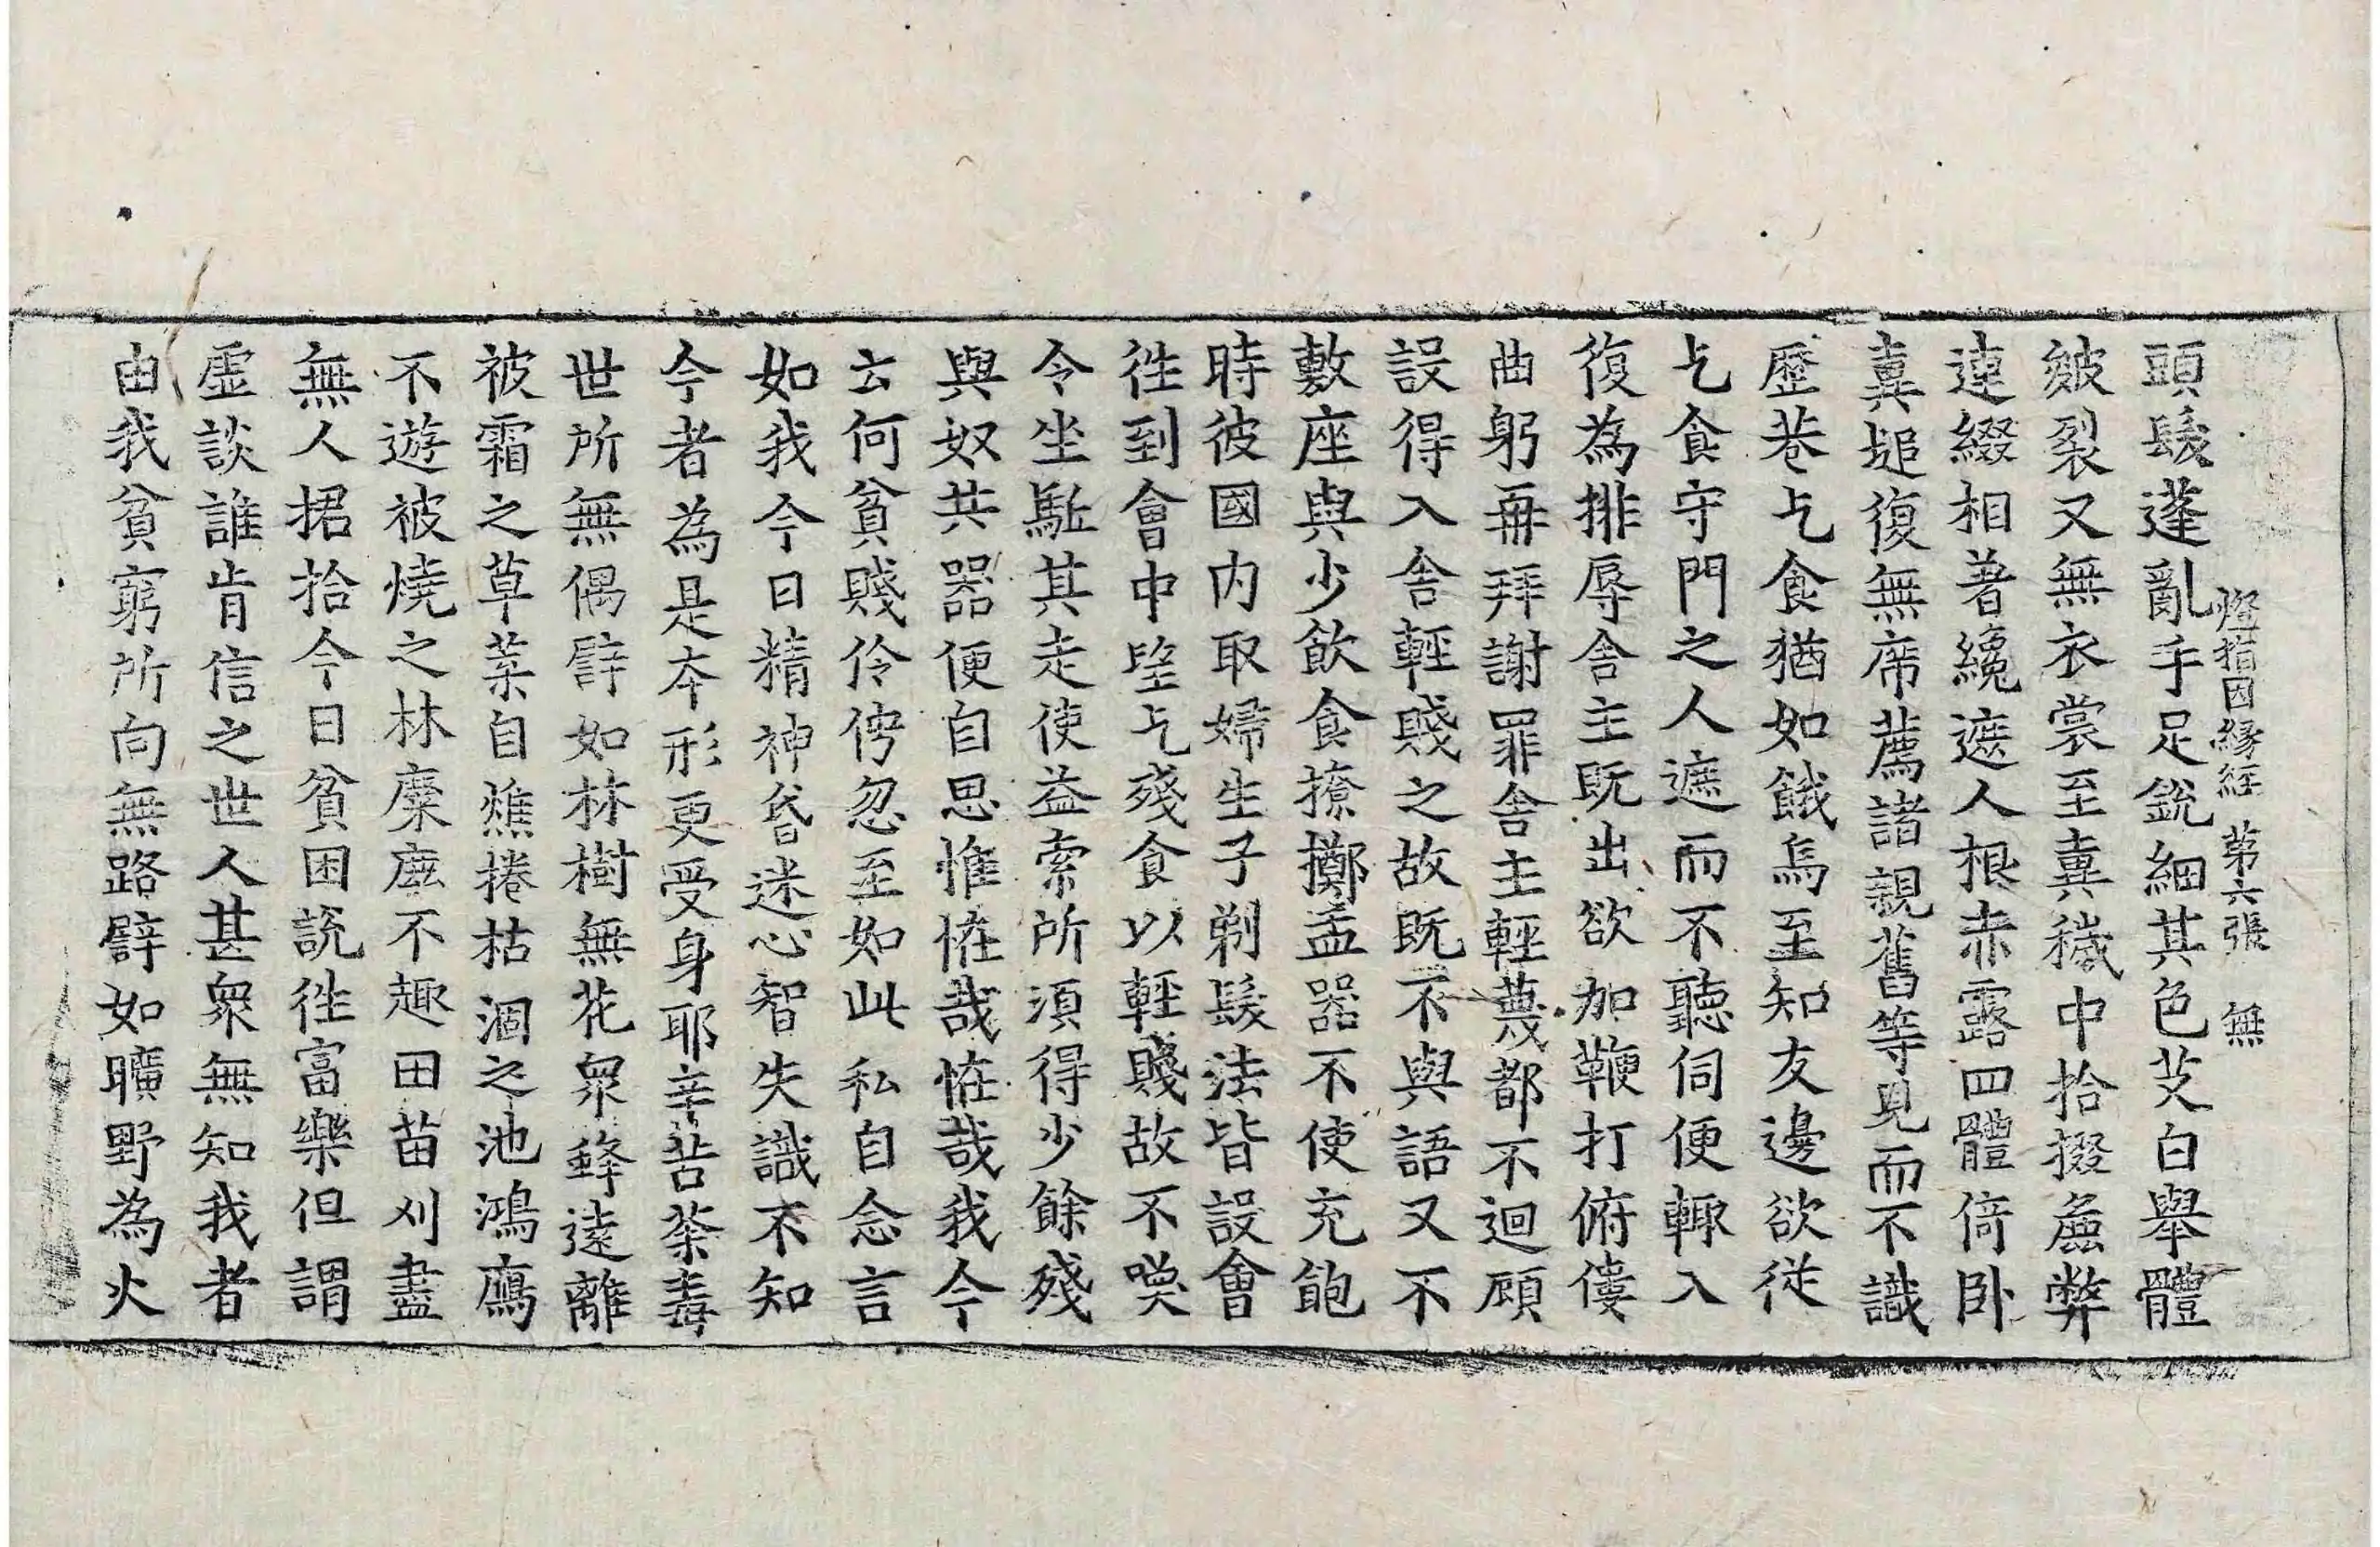 燈指因緣經 第六張 無
頭髮蓬亂手足銳細其色艾白舉體
皴裂又無衣裳至糞穢中拾掇麁弊
連綴相著纔遮人根赤露四體倚卧
糞塠復無席薦諸親舊等見而不識
歷巷乞食猶如餓烏至知友邊欲從
乞食守門之人遮而不聽伺便輙入
復為排辱舍主既出欲加鞭打俯僂
曲躬再拜謝罪舍主輕蔑都不迴顧
設得入舍輕賤之故既不與語又不
敷座與少飲食撩擲盂器不使充飽
時彼國内取婦生子剃髮法皆設會
徃到會中望乞殘食以輕賤故不喚
令坐駈其走使益索所須得少餘殘
與奴共器便自思惟恠哉恠哉我今
云何貧賤伶俜忽至如此私自念言
如我今日精神昏迷心智失識不知
今者為是本形更受身耶辛苦荼毒
世所無偶譬如林樹無花衆蜂遠離
被霜之草葉自燋捲枯涸之池鴻鴈
不遊被燒之林麋鹿不趣田苗刈盡
無人捃拾今日貧困說徃富樂但謂
虛談誰肯信之世人甚衆無知我者
由我貧窮所向無路譬如曠野為火